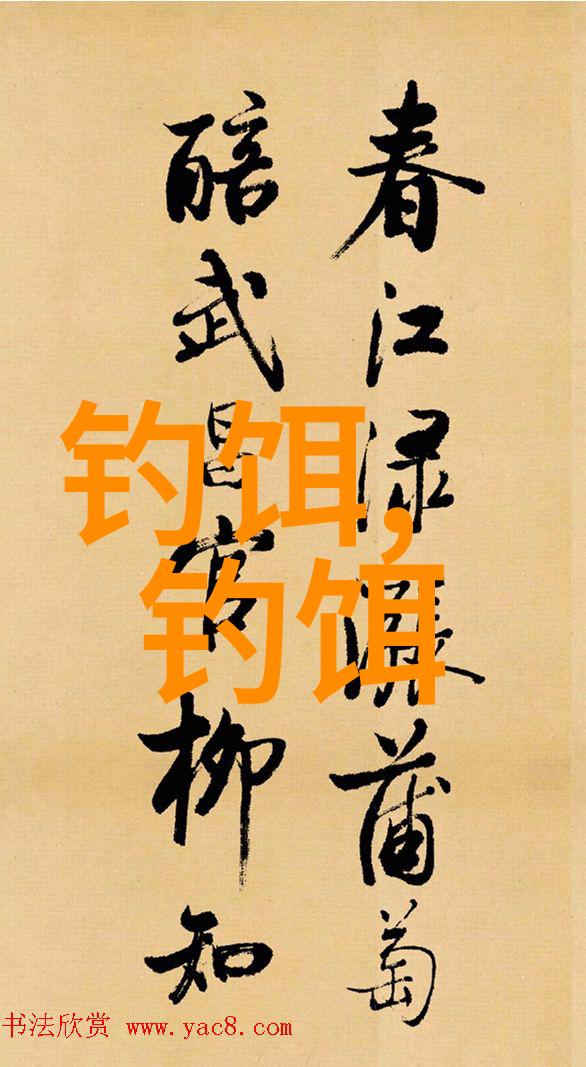 春江渌漲蒲萄
醅武昌官柳知
钓饵,
钓饵
书法欣赏 www.yac8.com